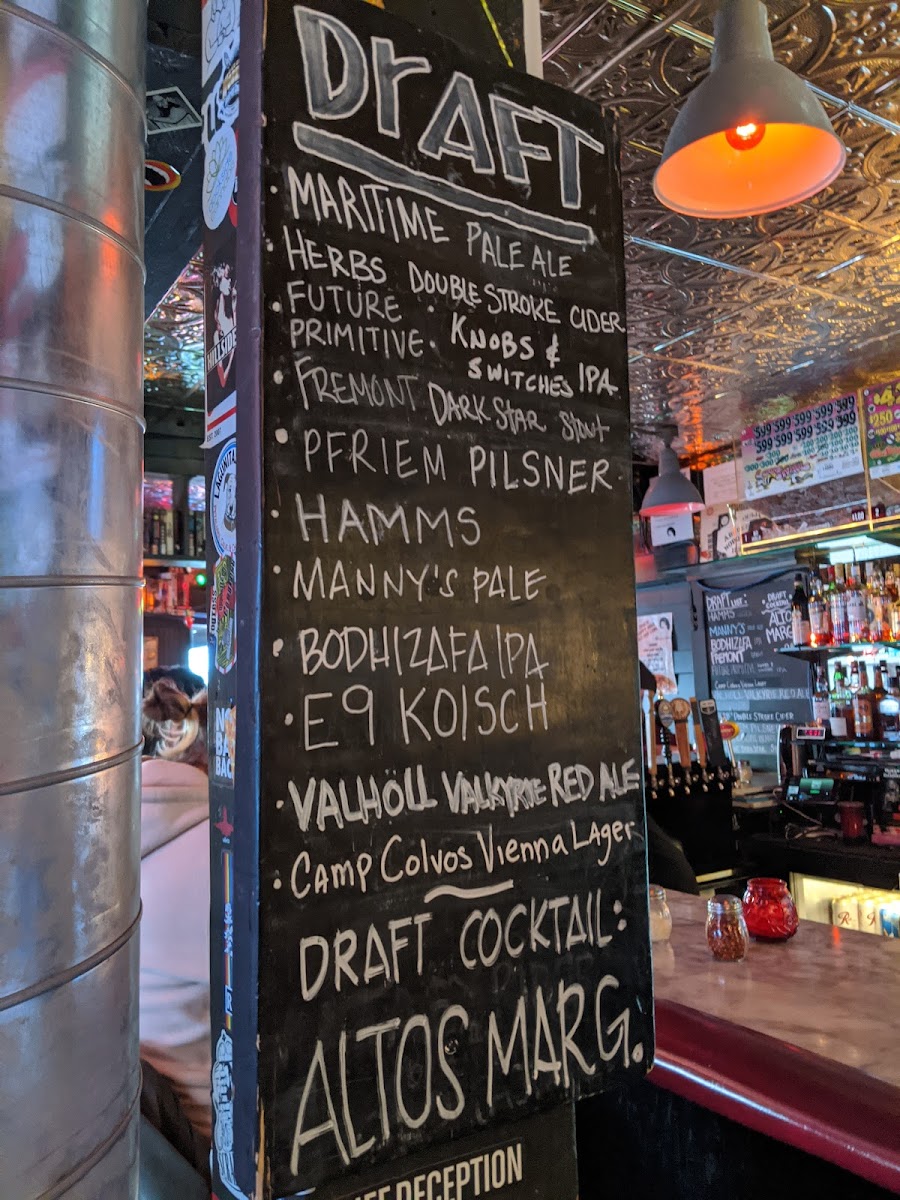 DrAFT
• MARITIME PALE ALE
• HERBS DOUBLE STROKE CIDER
• FUTURE PRIMITIVE • KNOBS & SWITCHES IPA
• FREMONT DARK STAR Stout
• PFRIEM PILSNER
• HAMMS
• MANNY'S PALE
• BODHIZAFA IPA
• E9 KOISCH
• VALHÖLL VALKYRIE RED ALE
• CAMP COLVOS VIENNA LAGER
DRAFT COCKTAIL:
ALTOS MARG.
DECEPTION
HILLSIDE
LAGUNITAS
NO
BA
BAC
$99 $99 $99 $99 $99
$250
DRAFT
HAMMS
MANNY'S
BODHIZAFA
FREMONT
CAMP COLVOS VIENNA LAGER
VALHOLL VALKYRIE RED ALE
DOUBLE STROKE CIDER
DRAFT
ALTOS
MARG